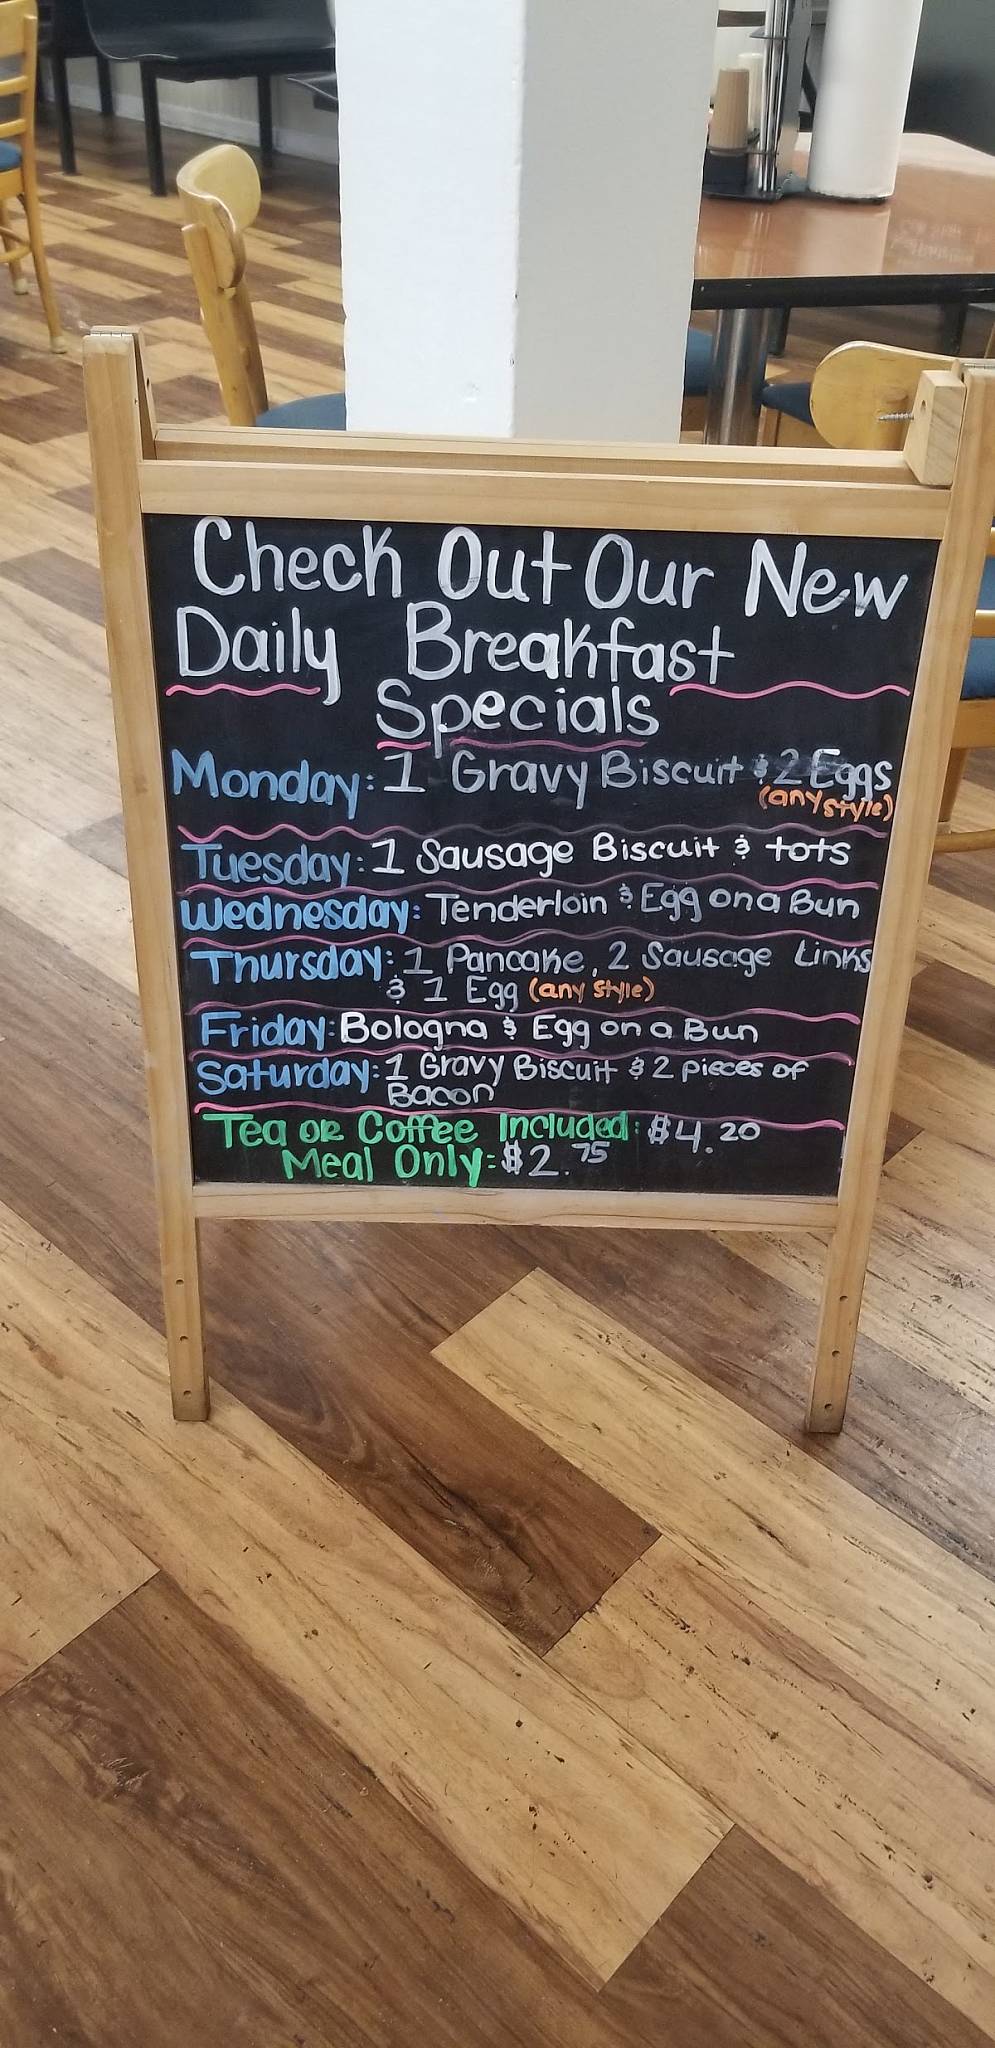 Check Out Our New
Daily Breakfast
Specials
Monday: 1 Gravy Biscuit & 2 Eggs
(any style)
Tuesday: 1 Sausage Biscuit & tots
Wednesday: Tenderloin & Egg on a Bun
Thursday: 1 Pancake, 2 Sausage Links
& 1 Egg (any style)
Friday: Bologna & Egg on a Bun
Saturday: 1 Gravy Biscuit & 2 pieces of
Bacon
Tea or Coffee Included: $4.20
Meal Only: $2.75